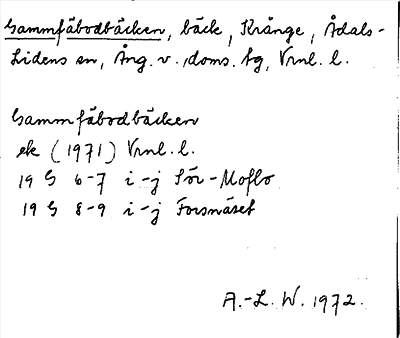 Gammfäbodbäcken, bäck, Krånge, Ådals-
Lidens sn, Ång. v. doms. tg, Vrnl. l.
Gammfäbodbäcken
ek (1971) Vrnl. l.
19 G 6-7 i-j Sör-Moflo
19 G 8-9 i-j Forsnäset
A.-L. W. 1972.